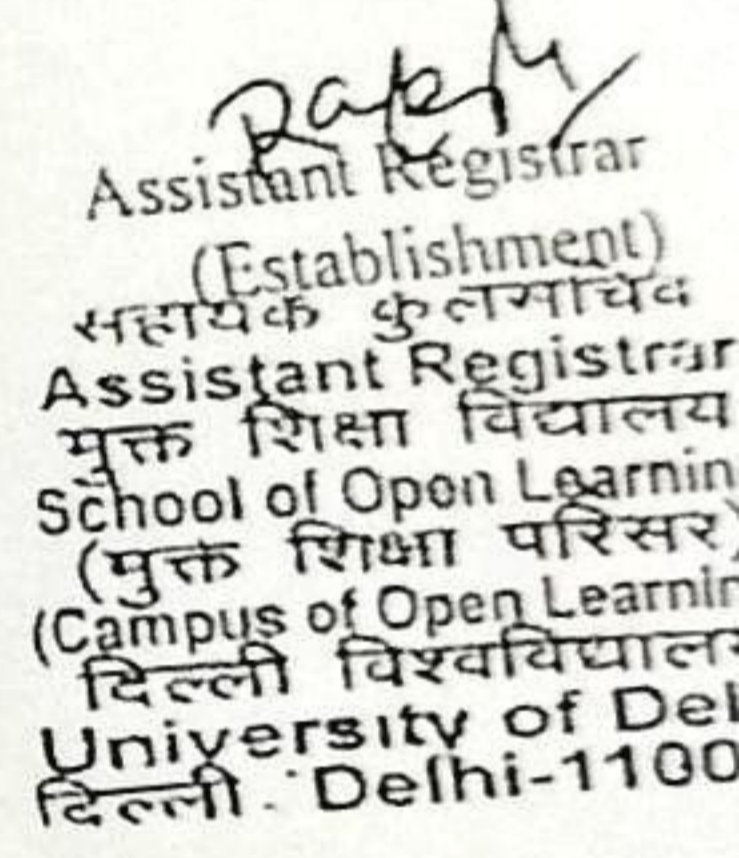 Assistant Registrar
(Establishment)
सहायक कुलसचिव
Assistant Registrar
मुक्त शिक्षा विद्यालय
School of Open Learnin
(मुक्त शिक्षा परिसर)
(Campus of Open Learnin
दिल्ली विश्वविद्याल
University of Del
दिल्ली. Delhi-1100